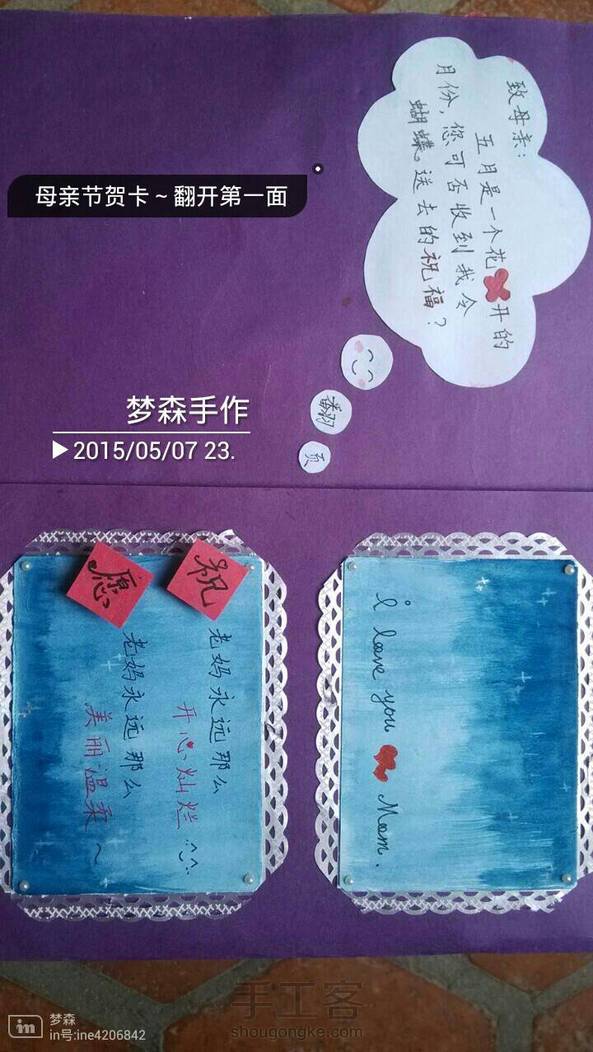 致母亲：
五月是一个花开的
月份，您可否收到我令
蝴蝶。送去的祝福？
翻
页
母亲节贺卡~翻开第一面
梦森手作
2015/05/07 23.
I love you Mom.
祝
老妈永远那么
开心灿烂
愿
老妈永远那么
美丽温柔~
in
梦森
in号:ine4206842
手工客
shougongke.com